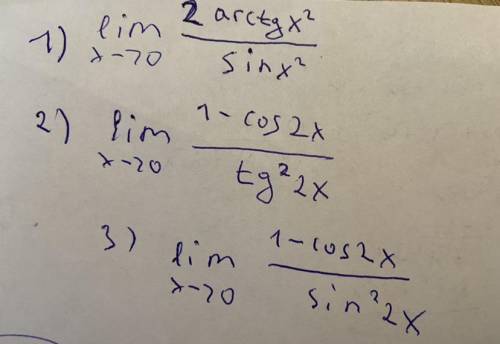 1) lim x→0 2 arctg x² / sin x²
2) lim x→0 1 - cos 2x / tg² 2x
3) lim x→0 1 - cos 2x / sin² 2x